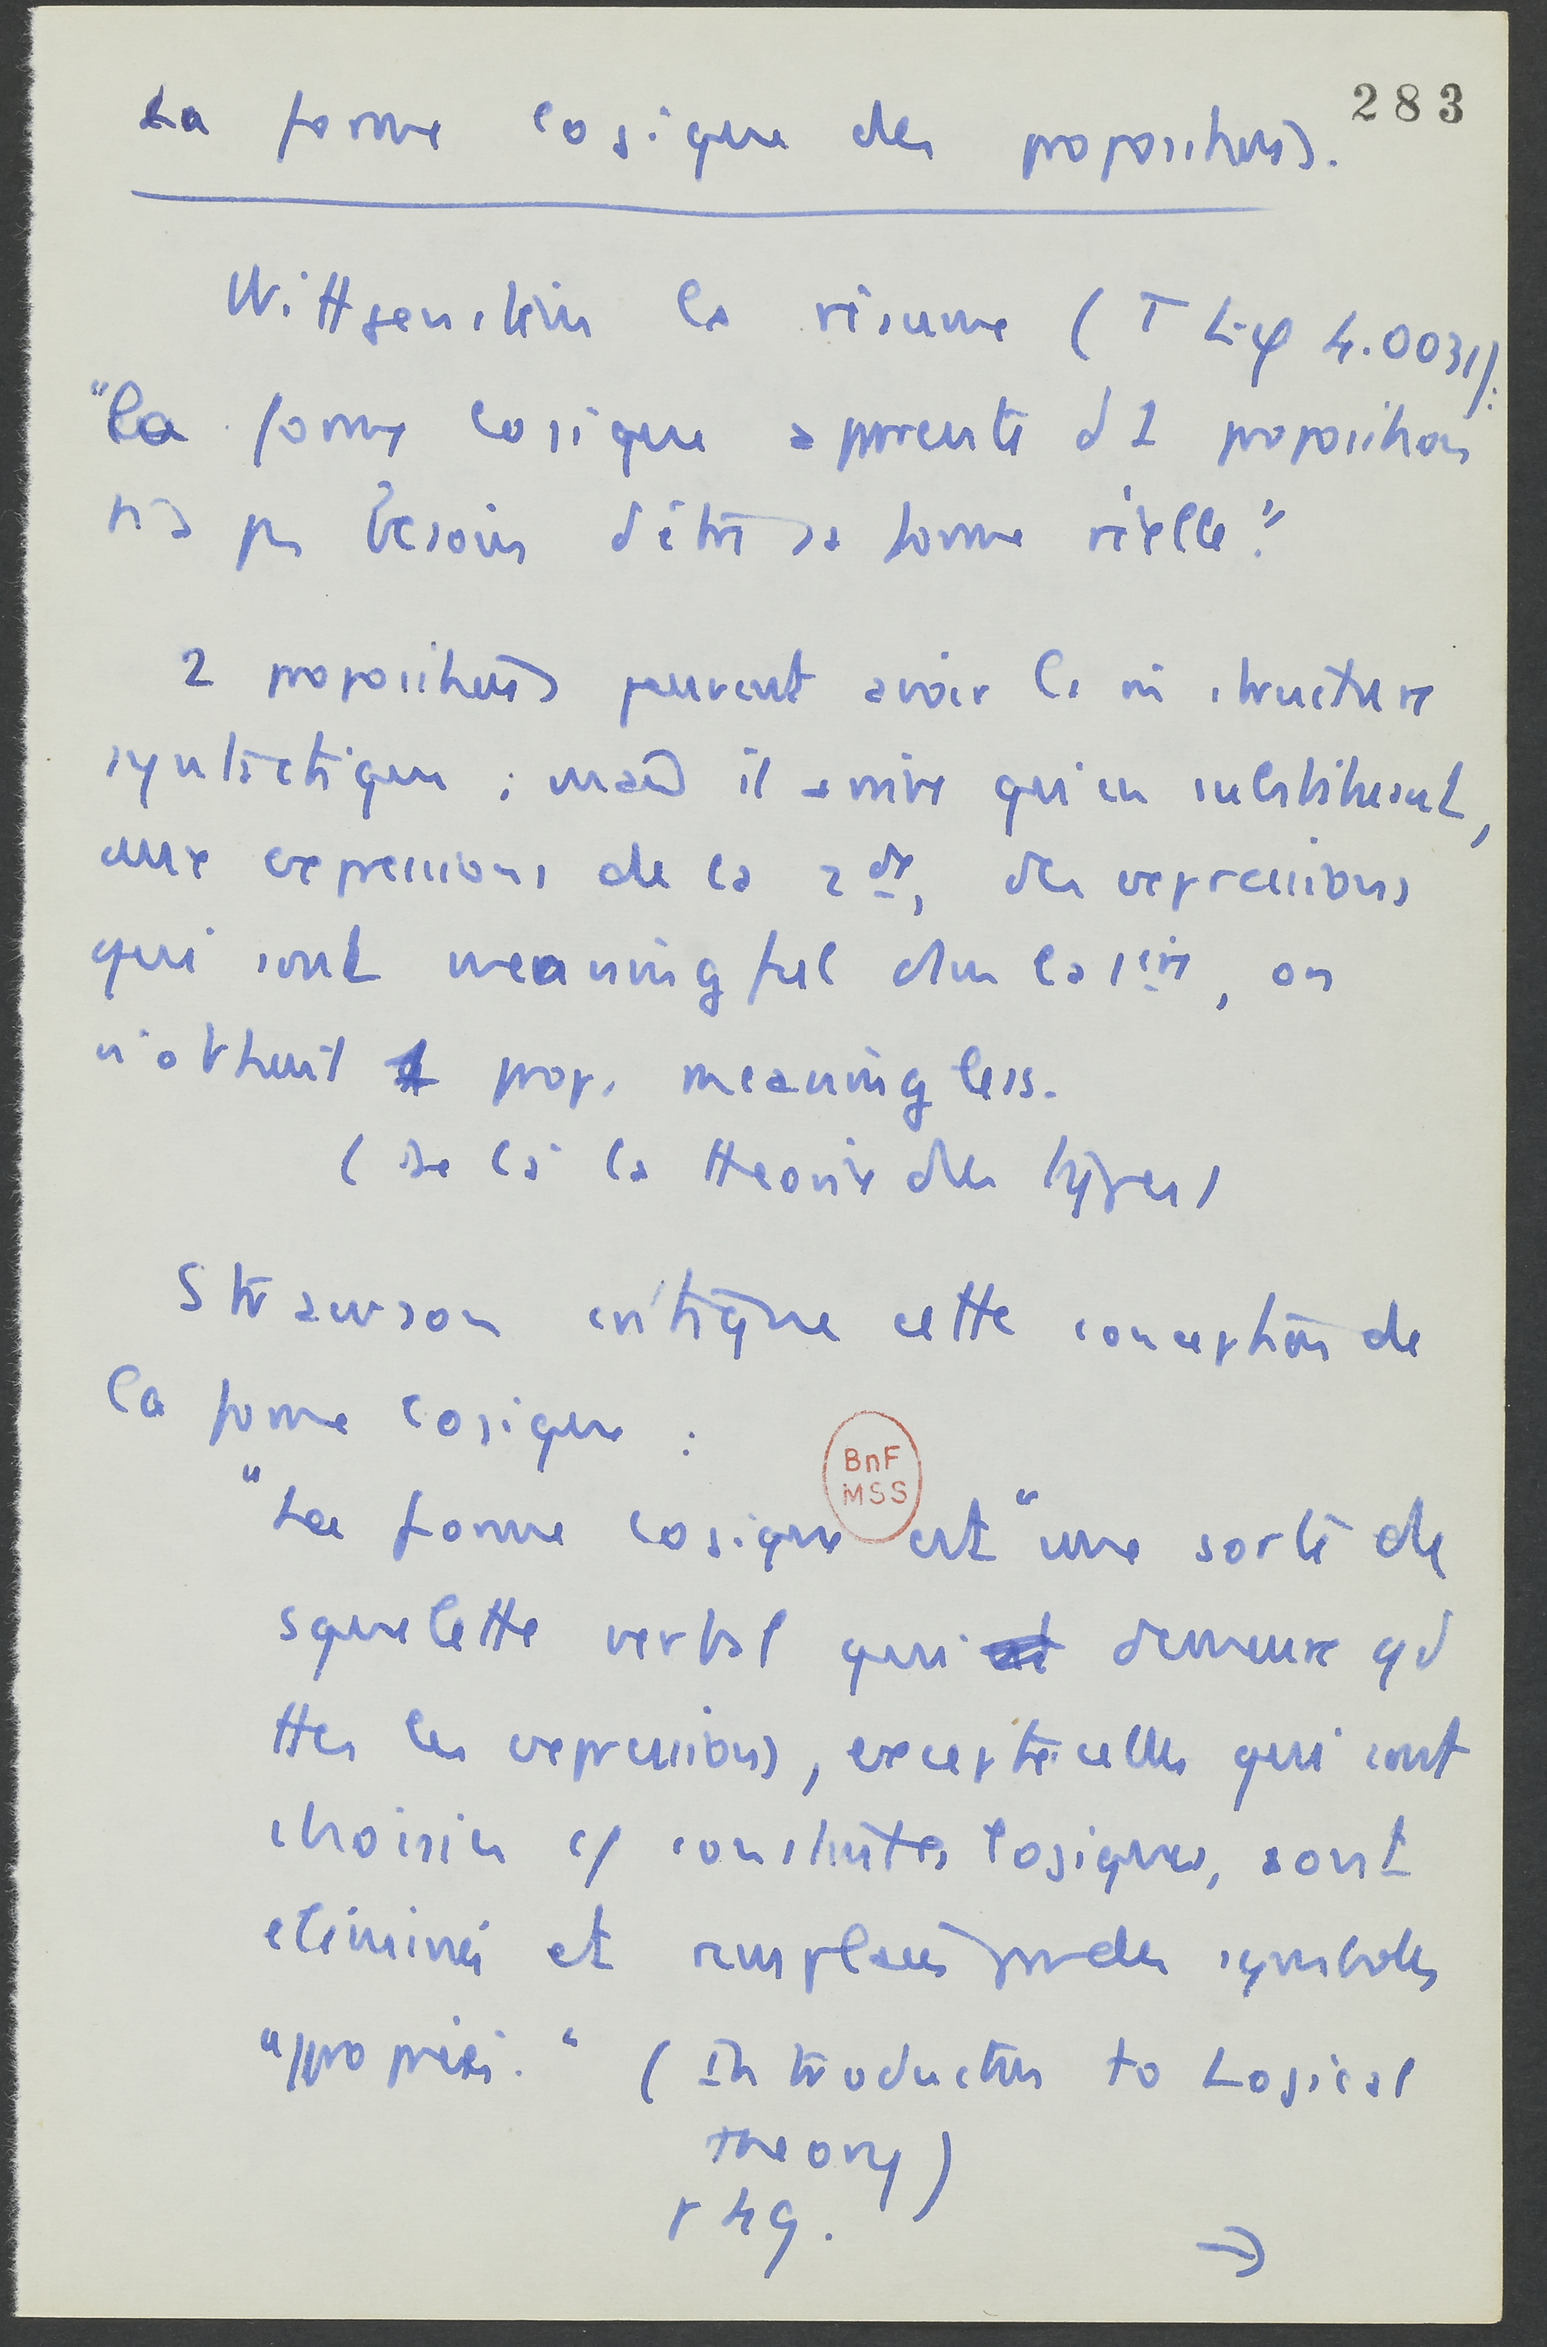 283
La forme logique des propositions.
Wittgenstein la résume (TLφ 4.0031):
"la forme logique apparente d 1 proposition
n'a pas besoin d'être sa forme réelle."
2 propositions peuvent avoir la m̂ structure
syntactique ; mais il arrive qu'en substituant,
aux expressions de la 2de, des expressions
qui sont meaningful dans la 1ère, on
n'obtient 1 prop. meaningless.
(De là la theorie des types)
Strawson critique cette conception de
la forme logique :
BnF
MSS
"La forme logique est "une sorte de
squelette verbal qui demeure qd
ttes les expressions, excepté celles qui sont
choisies c/ constantes logiques, sont
eliminés et remplacés par des symboles
appropriés." (Introduction to Logical
theory)
p 49.
→